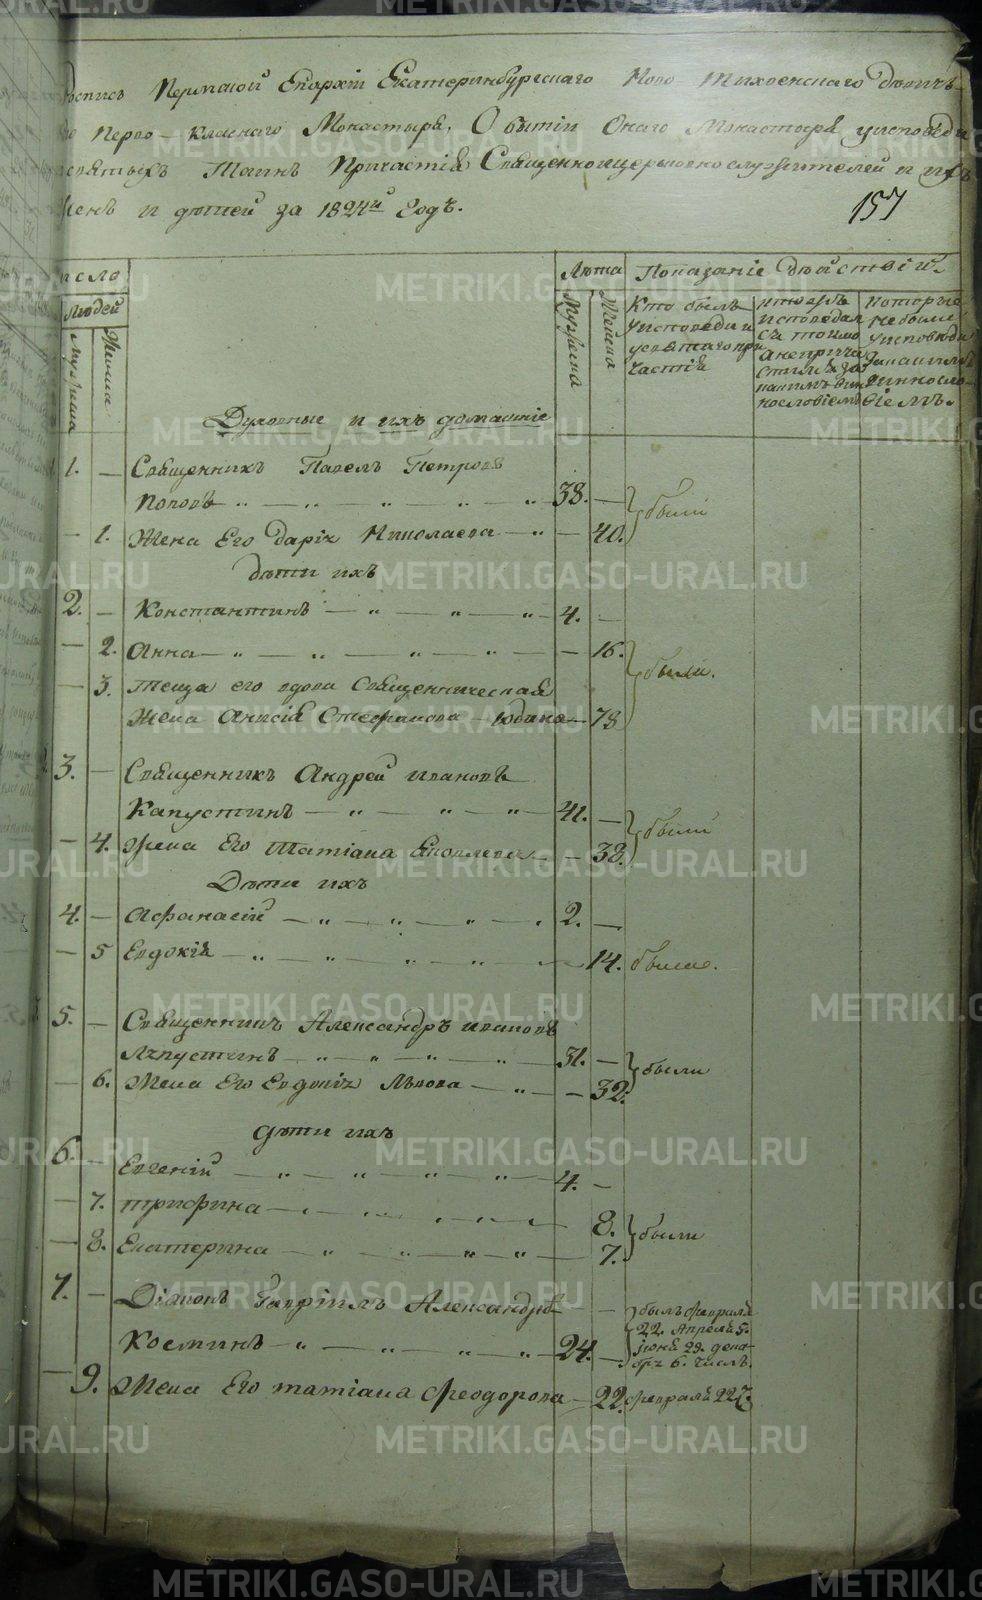 Роспись Пермской Епархіи Екатеринбургскаго Ново Тихвенскаго Дѣвичь
го перво-класнаго Монастыря, О бытіи Онаго Монастыря уисповѣди
исвятыхъ Таинъ Причастія Священноицерковнослужителей и ихъ
женъ и дѣтей за 1824й Годъ.
157
число
Людей
Мужеска
Женска
Лѣта
Мужеска
Женска
Показаніе дѣйствій.
Кто былъ уисповѣди и усвятаго причастія
Которые небыли уисповѣди
Духовные и ихъ домашніе
1. — Священникъ Павелъ Петровъ
Поповъ 38. — были
— 1. Жена Его Дарія Николаева — 40.
дѣти ихъ
2. — Константинъ 4. —
— 2. Анна — 16. были.
— 3. Теща его вдова Священническая
Жена Анисія Стефанова Юдина — 78
3. — Священникъ Андрей Ивановъ
Капустинъ 41. — были
— 4. Жена Его Татіана Яковлева — 38.
Дѣти ихъ
4. — Афанасій 2. —
— 5 Евдокія — 14. была.
5. — Священникъ Александръ Ивановъ
Лапустинъ 31. — были
— 6. Жена Его Евдокія Львова — 32.
дѣти ихъ
6. — Евгеній 4. —
— 7. Трифина 8. были
— 8. Екатерина — 7.
7. — Діаконъ Гавріилъ Александровъ
Косминъ 24. — былъ февраля
22. Апреля 5.
іюня 29. дека-
бря 6. числъ.
— 9. Жена Его татіана феодорова — 22. февраля 22.
METRIKI.GASO-URAL.RU